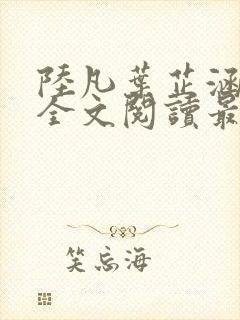 陸凡葉芷涵
全文閱讀最
笑忘海